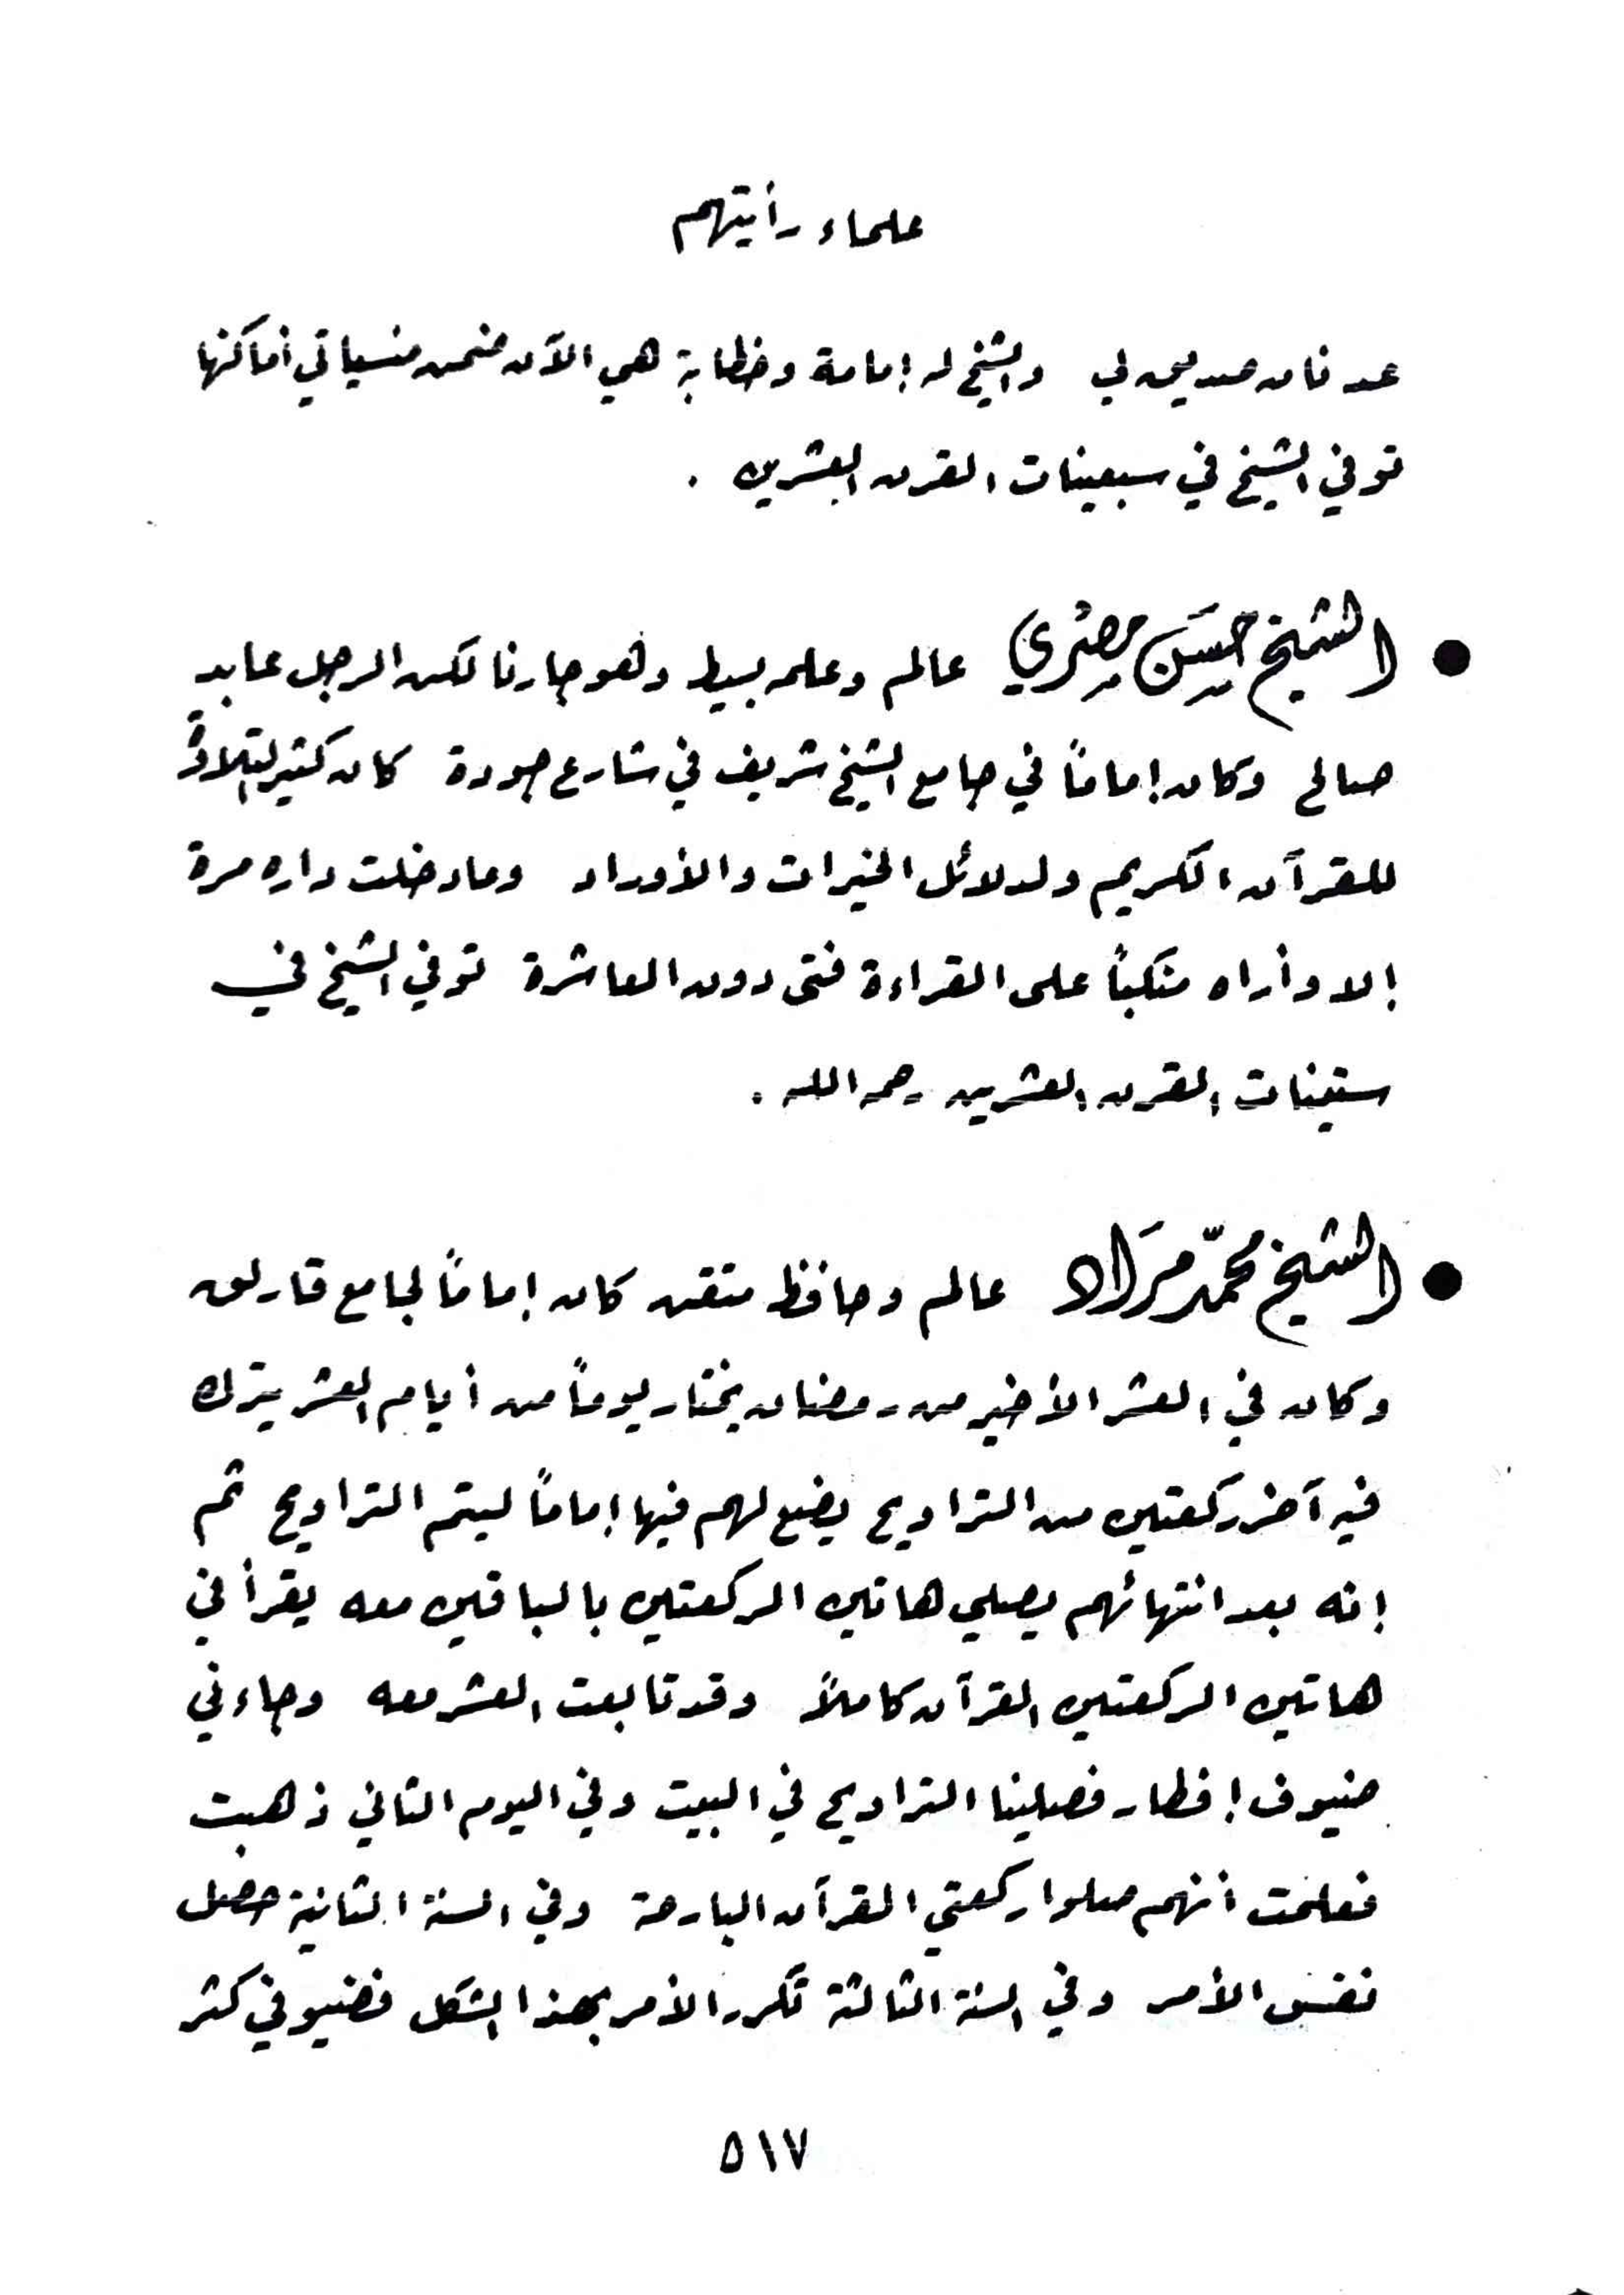 علماء رأيتهم
عدنان صديق لي والشيخ له إمامة وخطابة هي الآن ضمن منسياتي أماكنها
توفي الشيخ في سبعينات القرن العشرين .
● الشيخ حسَن مصْري عالم وعلمه بسيط وهو جارنا لكن الرجل عابد
صالح وكان إماماً في جامع الشيخ شريف في شارع جودة كان كثير التلاوة
للقرآن الكريم ولدلائل الخيرات والأوراد وما دخلت داره مرة
إلا وأراه منكباً على القراءة فتى دون العاشرة توفي الشيخ في
ستينات القرن العشرين رحمه الله .
● الشيخ محمّد مرَاد عالم وحافظ متقن كان إماماً لجامع قارلق
وكان في العشر الأخير من رمضان يختار يوماً من أيام العشر يترك
فيه آخر ركعتين من التراويح يضع لهم فيها إماماً ليتم التراويح ثم
إنه بعد انتهائهم يصلي هاتين الركعتين بالباقين معه يقرأ في
هاتين الركعتين القرآن كاملاً وقد تابعت العشر معه وجاءني
ضيوف إفطار فصلينا التراويح في البيت وفي اليوم الثاني ذهبت
فعلمت أنهم صلوا ركعتي القرآن البارحة وفي السنة الثانية حصل
نفس الأمر وفي السنة الثالثة تكرر الأمر بهذا الشكل فضيوفي كثر
٥١٧